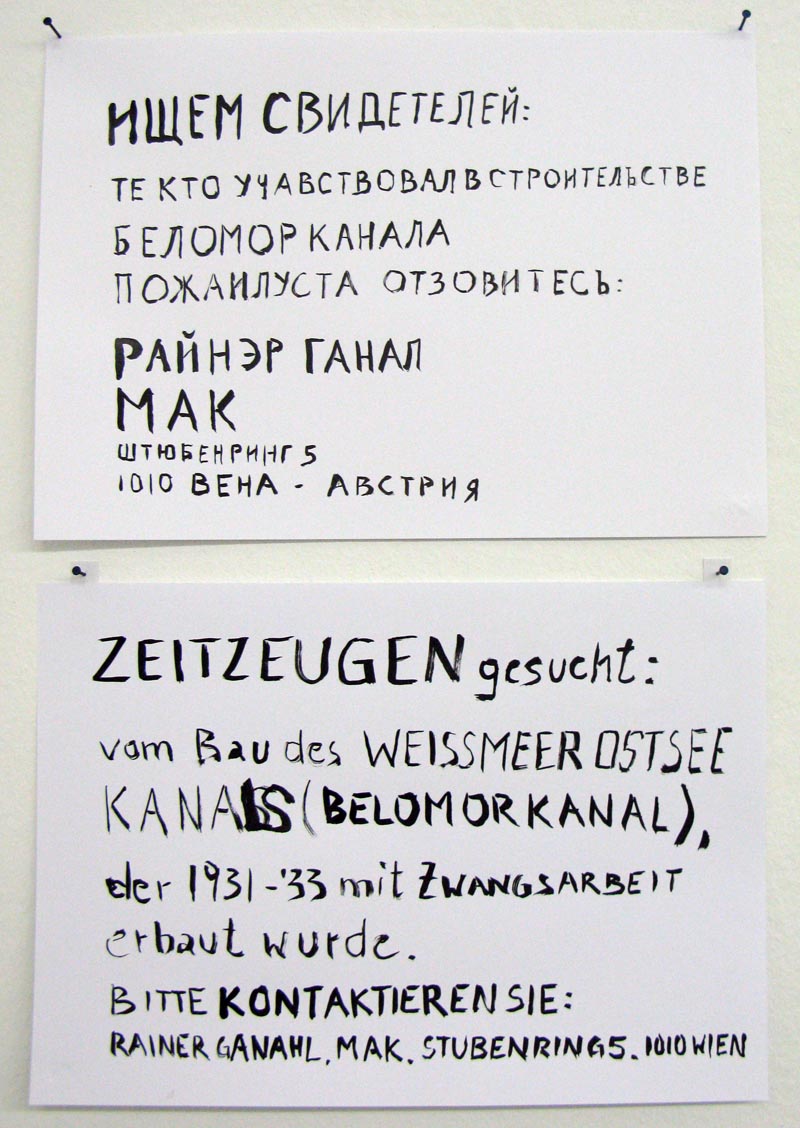 ИЩЕМ СВИДЕТЕЛЕЙ:
ТЕ КТО УЧАВСТВОВАЛ В СТРОИТЕЛЬСТВЕ
БЕЛОМОР КАНАЛА
ПОЖАИЛУСТА ОТЗОВИТЕСЬ:
РАЙНЭР ГАНАЛ
МАК
ШТЮБЕНРИНГ 5
1010 ВЕНА - АВСТРИЯ
ZEITZEUGEN gesucht:
vom Bau des WEISSMEER OSTSEE
KANALS (BELOMORKANAL),
der 1931-'33 mit ZWANGSARBEIT
erbaut wurde.
BITTE KONTAKTIEREN SIE:
RAINER GANAHL, MAK, STUBENRING 5. 1010 WIEN